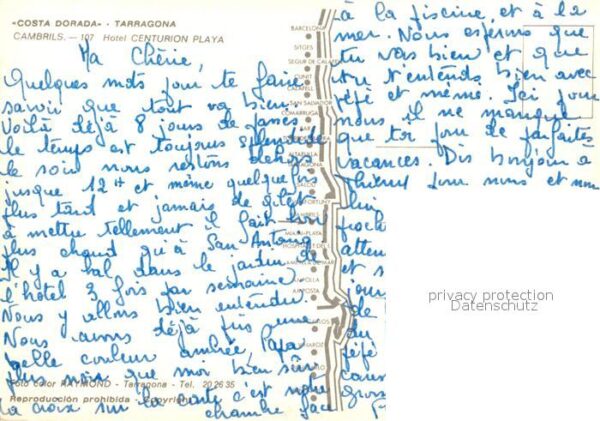 «COSTA DORADA» - TARRAGONA
CAMBRILS. — 107 Hotel CENTURION PLAYA
Ma Chérie,
Quelques mots pour te faire
savoir que tout va bien
Voilà déjà 8 jours de passés
le temps est toujours splendide
le soir nous restons dehors
jusque 12 H et même quelquefois
plus tard et jamais de gilet
à mettre tellement il fait bon
plus chaud qu'à San Antonio
Il y a bal dans le jardin de
l'hôtel 3 fois par semaine
Nous y allons bien entendu.
Nous avons déjà pris une
belle couleur ambrée, Papa
plus noir que moi bien sûr
la croix sur la carte c'est notre
chambre face
à la piscine et à la
mer. Nous espérons que
tu vas bien et que
tu t'entends bien avec
pépé et mémé. Ici pour
nous il ne manque
que toi pour de parfaites
vacances. Dis bonjour à
Thierry pour nous et
atten
et
jour
de
du
pépé
gros
Foto color RAYMOND - Tarragona - Tel. 20 26 35
Reproducción prohibida - Copyright
BARCELONA
SITGES
SEGUR DE CALAFELL
CUNIT
CALAFELL
SAN SALVADOR
COMARRUGA
SALOU
CAMBRILS
MIAMI-PLAYA
AMETLLA DE MAR
AMPOLLA
AMPOSTA
VINAROZ
privacy protection
Datenschutz